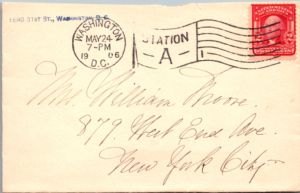 1680 31ST ST., WASHINGTON, D.C.
WASHINGTON
MAY 24
7-PM
1906
D.C.
STATION
A
1
Mrs. William Moore.
879 West End Ave.
New York City